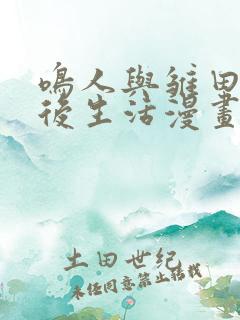 鳴人與雛田
後生活漫畫
土田世紀
未经同意禁止转载